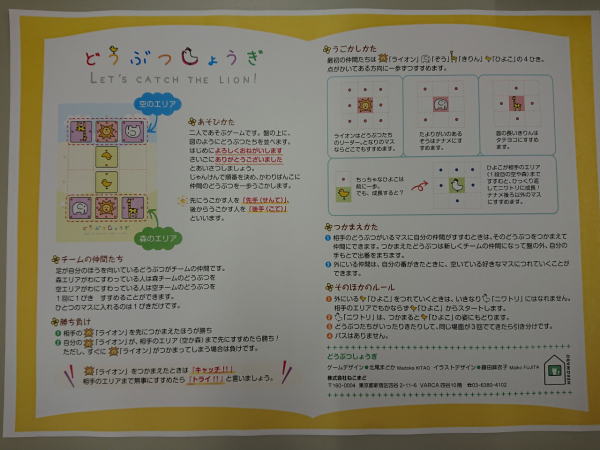 どうぶつしょうぎ
LET'S CATCH THE LION!
空のエリア
森のエリア
あそびかた
二人であそぶゲームです。盤の上に、
図のようにどうぶつたちを並べます。
はじめによろしくおねがいします
さいごにありがとうございました
とあいさつしましょう。
じゃんけんで順番を決め、かわりばんこに
仲間のどうぶつを一歩うごかします。
先にうごかす人を「先手(せんて)」、
後からうごかす人を「後手(ごて)」
といいます。
チームの仲間たち
足が自分のほうを向いているどうぶつがチームの仲間です。
森エリアがわにすわっている人は森チームのどうぶつを
空エリアがわにすわっている人は空チームのどうぶつを
1回に1ぴき すすめることができます。
ひとつのマスに入れるのは1ぴきだけです。
勝ち負け
1 相手の「ライオン」を先につかまえたほうが勝ち
2 自分の「ライオン」が、相手のエリア(空か森)まで先にすすめたら勝ち!
ただし、すぐに「ライオン」がつかまってしまう場合は負けです。
「ライオン」をつかまえたときは「キャッチ!!」
相手のエリアまで無事にすすめたら「トライ!!」と言いましょう。
うごかしかた
最初の仲間たちは「ライオン」「ぞう」「きりん」「ひよこ」の4ひき。
点がかいてある方向に一歩ずつすすめます。
ライオンはどうぶつたち
のリーダー。となりのマス
ならどこでもすすめます。
たよりがいのある
ぞうはナナメにす
すめます。
首の長いきりんは
タテヨコにすすめ
ます。
ちっちゃなひよこは
前に一歩。
でも、成長すると?
ひよこが相手のエリア
(1段目の空や森)まで
すすむと、ひっくり返
してニワトリに成長!
ナナメ後ろ以外のマス
にすすめます。
つかまえかた
1 相手のどうぶつがいるマスに自分の仲間がすすむときは、そのどうぶつをつかまえて
仲間にできます。つかまえたどうぶつは新しくチームの仲間になって盤の外、自分の
手もとで出番をまちます。
2 外にいる仲間は、自分の番がきたときに、空いている好きなマスにつれていくことが
できます。
そのほかのルール
1 外にいる「ひよこ」をつれていくときは、いきなり「ニワトリ」にはなれません。
相手のエリアでもかならず「ひよこ」からスタートします。
2 「ニワトリ」は、つかまると「ひよこ」の姿にもどります。
3 どうぶつたちがいったりきたりして、同じ場面が3回でてきたら引き分けです。
4 パスはありません。
どうぶつしょうぎ
ゲームデザイン※北尾まどか Madoka KITAO イラストデザイン※藤田麻衣子 Maiko FUJITA
株式会社ねこまど
〒160-0004 東京都新宿区四谷2-11-6 VARCA四谷10階 ☎03-6380-4102